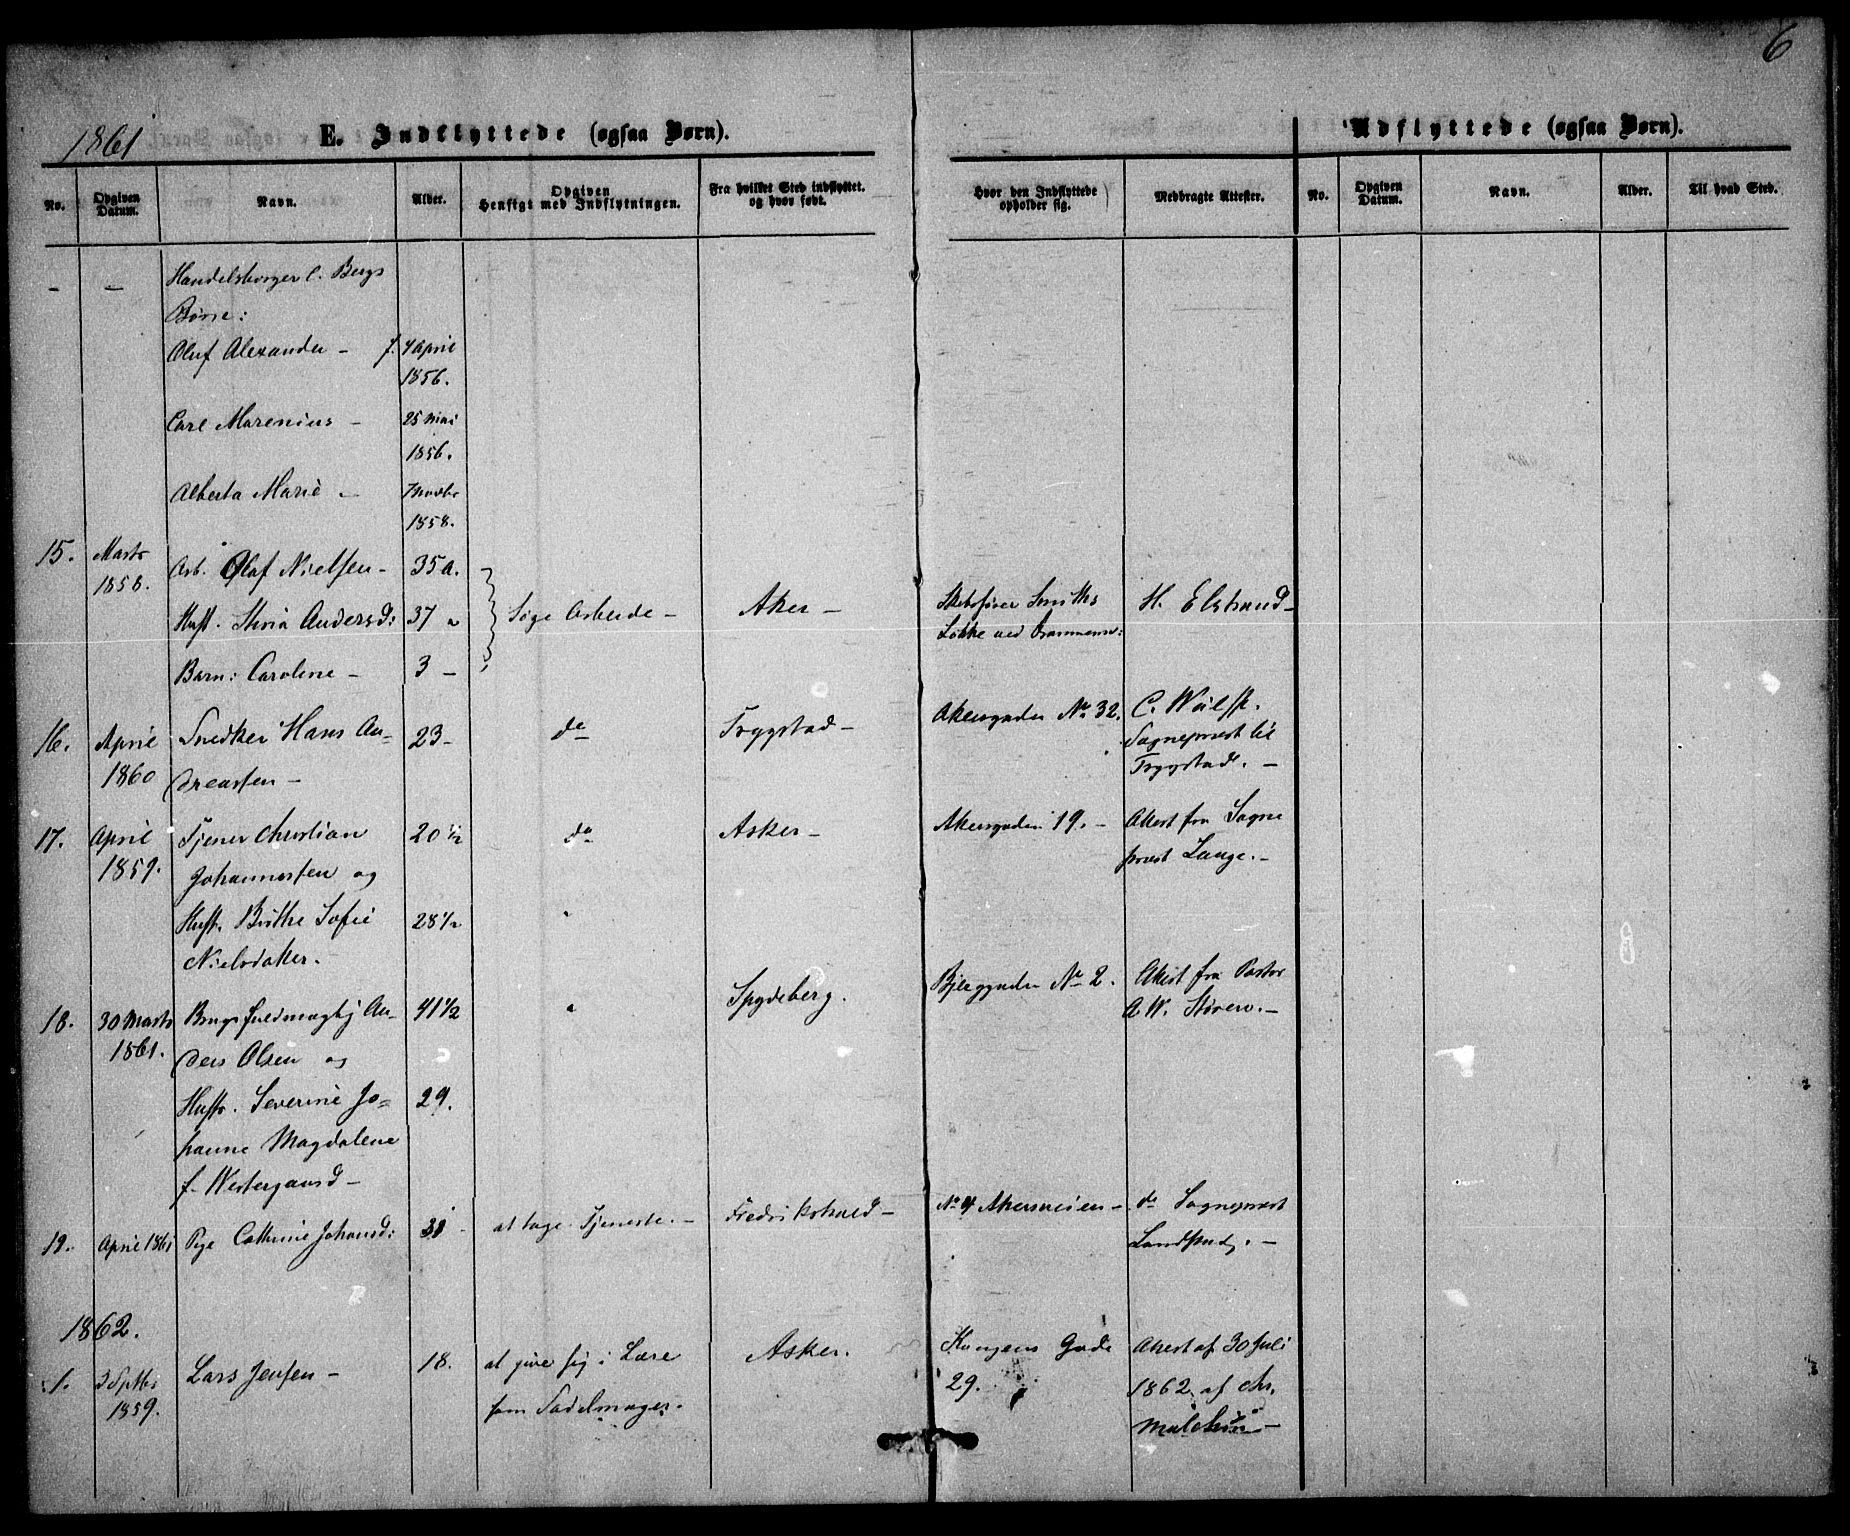 6
1861
E. Indflyttede (ogsaa Børn).
Udflyttede (ogsaa Børn).
No.
Opgiven Datum.
Navn.
Alder.
Opgiven Hensigt med Indflytningen.
Fra hvilket Sted indflyttet. og hvor født.
Hvor den Indflyttede opholder sig.
Medbragte Attester.
No.
Opgiven Datum.
Navn.
Alder.
Til hvad Sted.
— — Handelsborger C. Bergs
Børn:
Oluf Alexander – f. 4 April
1856.
Carl Marenius – 25 Mai
1856.
Alberta Marie – 7 Novbr
1858.
15. Marts 1858. Arb. Olaf Nielsen – 35 a.
Hust. Andersd: 37 " Søge Arbeide – Aker – Smiths Løkke ved H. Elstrand –
Barn: Caroline – 3 –
16. April 1860 Snedker Hans An-
dreassen – 23 – do Tryggstad – Akersgaden No 32. C. Sogneprest til Tryggstad. –
17. April 1859. Tjener Christian
Johannessen og 20 1/2 do Asker – Akersgaden 19. – Attest fra Sogne
prest Lange. –
Hust. Birthe Sofie 28 1/2 "
Nielsdatter.
18. 30 Marts 1861. An-
ders Olsen og 41 1/2 " Spydeberg. No 2. Attest fra Pastor
A. W. –
Hustr. Severine Jo- 29.
hanne Magdalene
f. Westergaard –
19. April 1861 Pige Cathrine Johansd: at tage Tjeneste. – Fredrikshald – No 4 Akersveien – do Sogneprest
–
1862.
1. 3 Septbr 1859. Lars Jensen – 18. at give sig i Lære
som Sadelmager. Asker. Kongens Gade
29. Attest af 30 Juli
1862 af Chr.